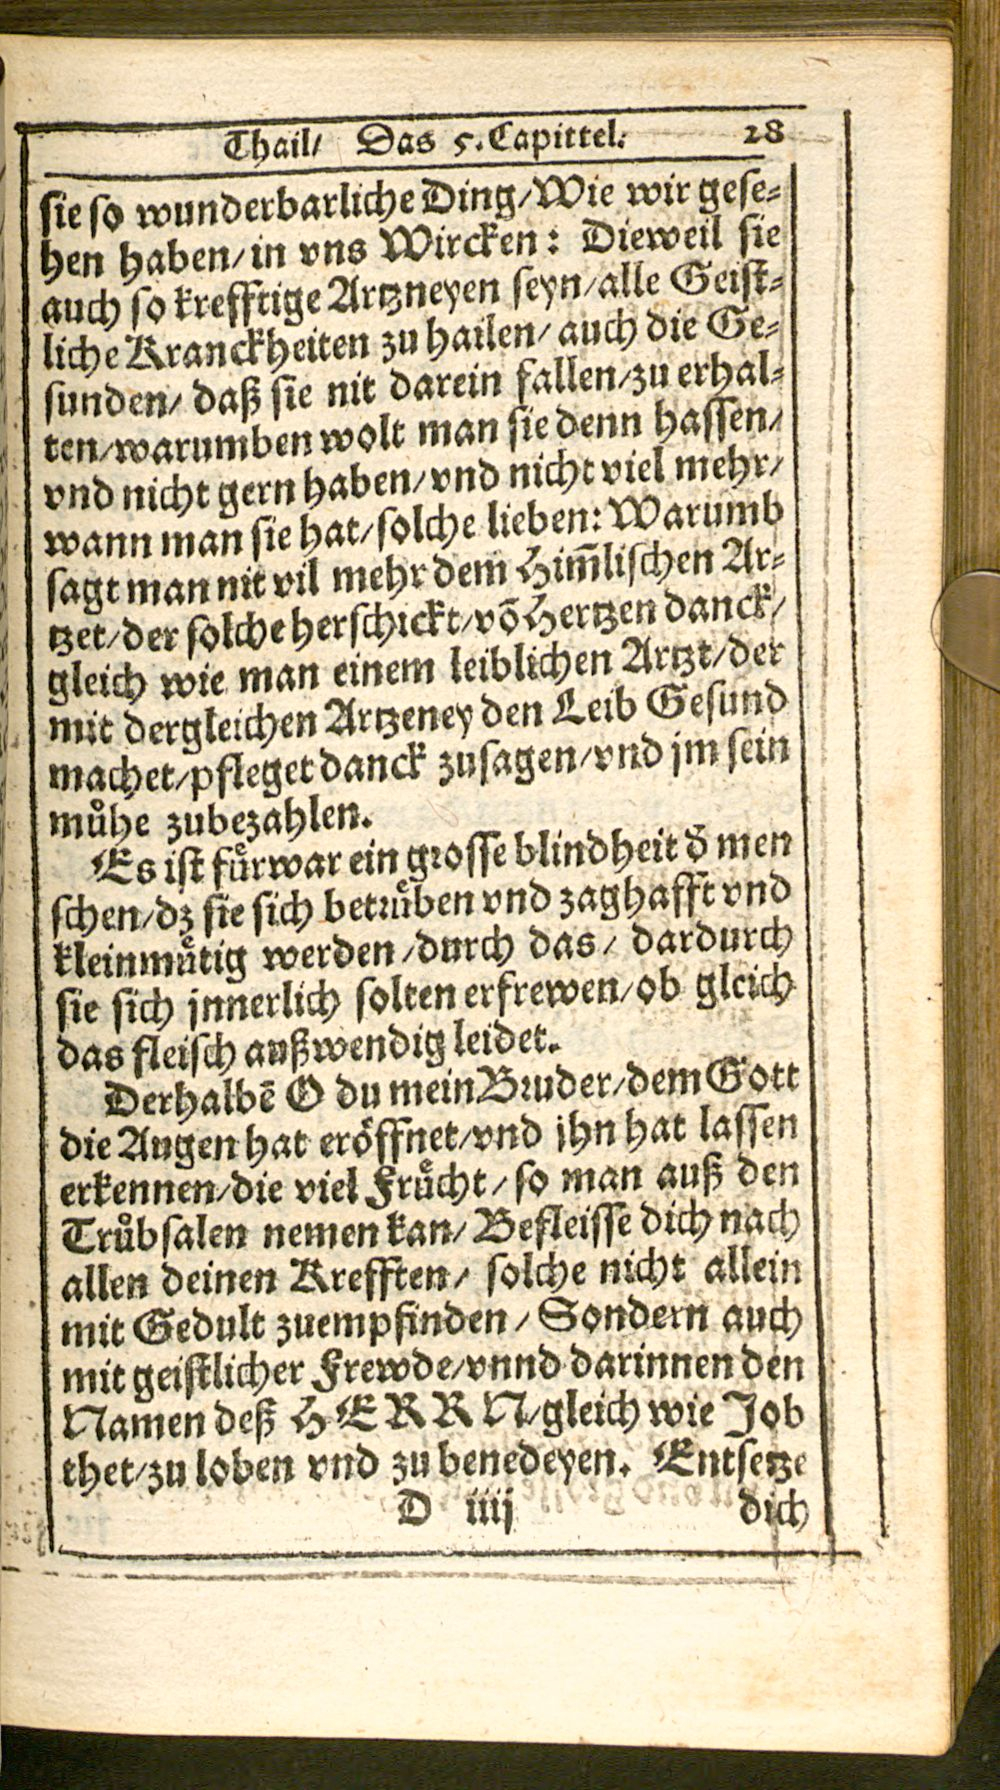 Thail/ Das 5. Capittel. 28
sie so wunderbarliche Ding/Wie wir gese-
hen haben/in vns Wircken: Dieweil sie
auch so krefftige Artzneyen seyn/alle Geist-
liche Kranckheiten zu hailen/auch die Ge-
sunden/ daß sie nit darein fallen/zu erhal-
ten/warumben wolt man sie denn hassen/
vnd nicht gern haben/vnd nicht viel mehr/
wann man sie hat/solche lieben: Warumb
sagt man nit vil mehr dem Him̃lischen Ar-
tzet/der solche herschickt/võ Hertzen danck/
gleich wie man einem leiblichen Artzt/der
mit dergleichen Artzeney den Leib Gesund
machet/pfleget danck zusagen/vnd jm sein
muͤhe zubezahlen.
Es ist fuͤrwar ein grosse blindheit d̕ men
schen/dz sie sich betruͤben vnd zaghafft vnd
kleinmuͤtig werden/durch das/ dardurch
sie sich jnnerlich solten erfrewen/ob gleich
das fleisch außwendig leidet.
Derhalbẽ O du mein Bruder/dem Gott
die Augen hat eroͤffnet/vnd jhn hat lassen
erkennen/die viel Fruͤcht/so man auß den
Truͤbsalen nemen kan/Befleisse dich nach
allen deinen Krefften/ solche nicht allein
mit Gedult zuempfinden/Sondern auch
mit geistlicher Frewde/vnnd darinnen den
Namen deß HERRN/gleich wie Job
thet/zu loben vnd zu benedeyen. Entsetze
D iiij dich